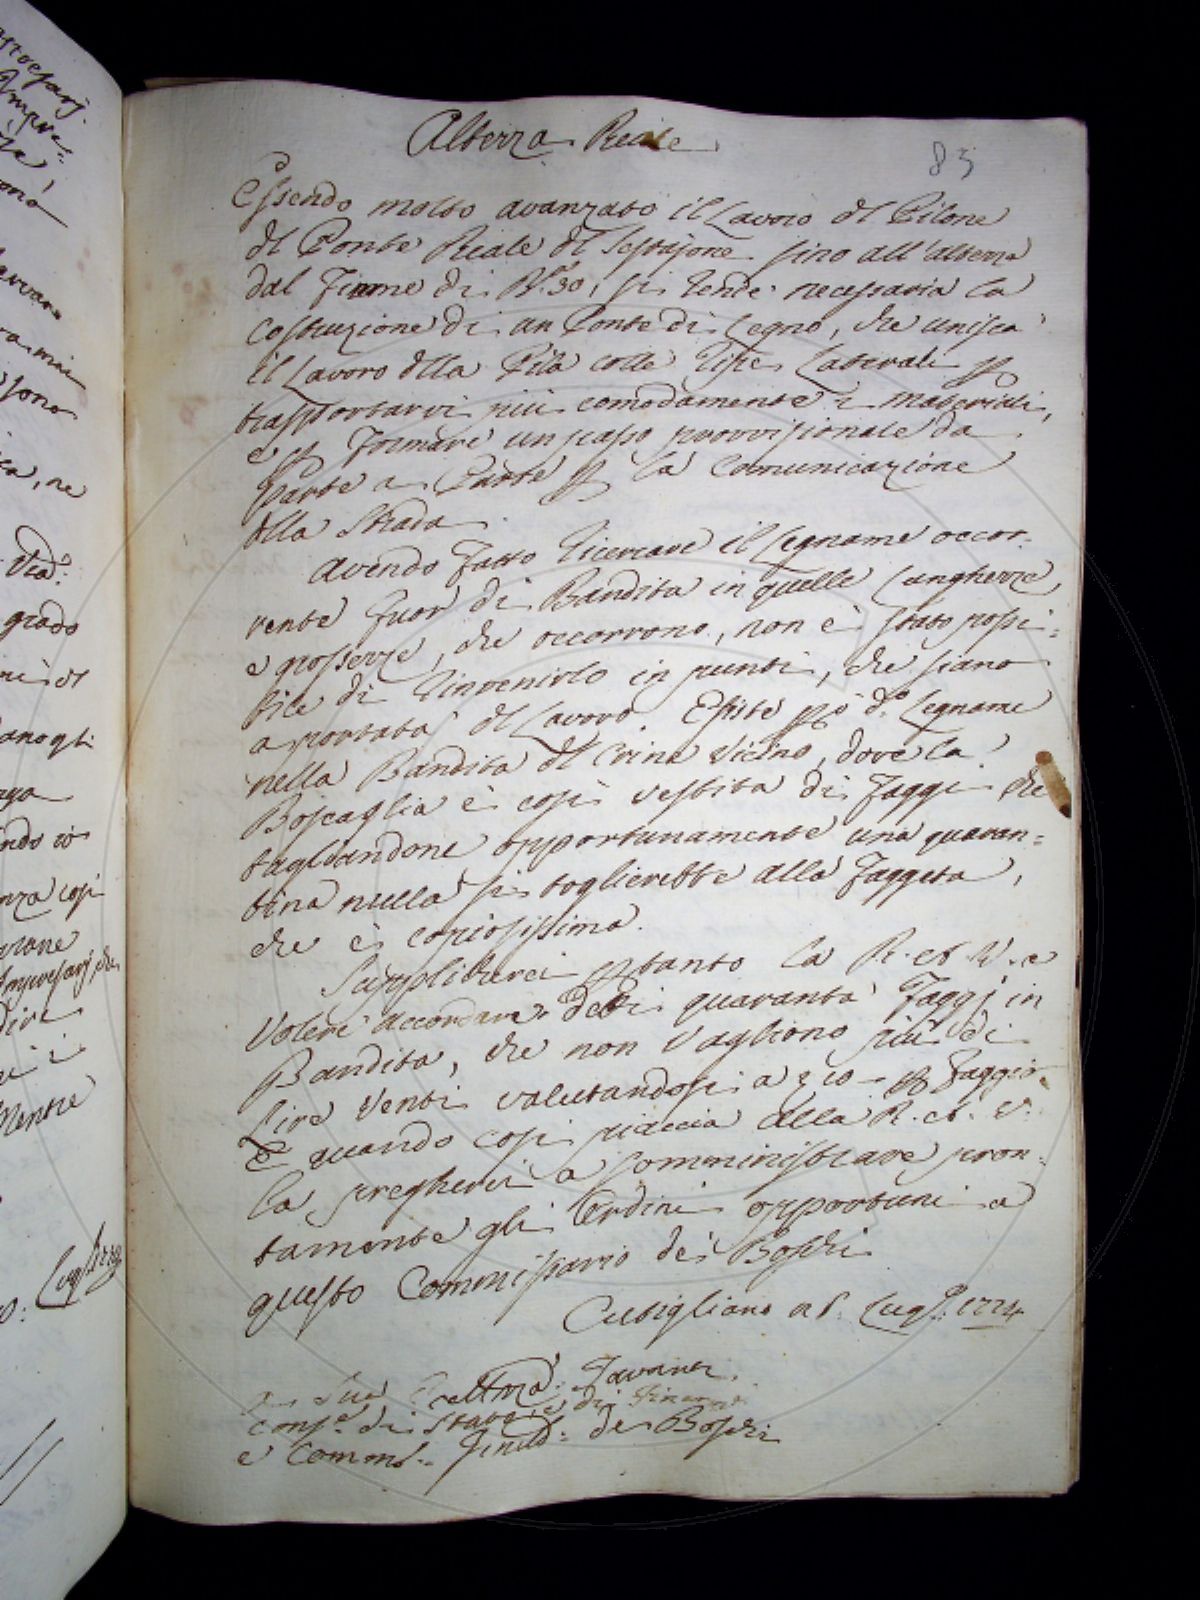 Altezza Reale
83
Essendo molto avanzato il Lavoro dl Pilone
dl Ponte Reale dl Sestajone sino all'altezza
dal Fiume di Bª 30, si rende necessaria la
costruzione di un Ponte di Legno, che unisca
il Lavoro dlla Pila colle Ripe Laterali p
trasportarvi più comodamente i materiali,
e p formare un passo provvisionale da
Parte a Parte p la comunicazione
dlla Strada
Avendo fatto ricercare il Legname occor-
rente fuor di Bandita in quelle Lunghezze,
e grossezze, che occorrono, non è stato possi-
bile di rinvenirlo in punti, che siano
a portata dl Lavoro. Esiste pò dº Legname
nella Bandita dl Crine Vicino, dove la
Boscaglia è così vestita di Faggi che
tagliandone opportunamente una quaran=
tina nulla si toglierebbe alla Faggeta,
che è copiosissima.
Supplicherei ptanto la R. A. V. a
Volere accordare detti quaranta Faggj in
Bandita, che non vagliono più di
lire Venti valutandosi a 10 p Faggio
E quando così piaccia alla R. A. V.
la pregherei a somministrare pron-
tamente gli Ordini opportuni a
questo Commissario de' Boschi
Cutigliano a Lugº 1774
a Sua Eccellnza Tavanti
Consº di Stato e di Finanze
e Comms de Boschi